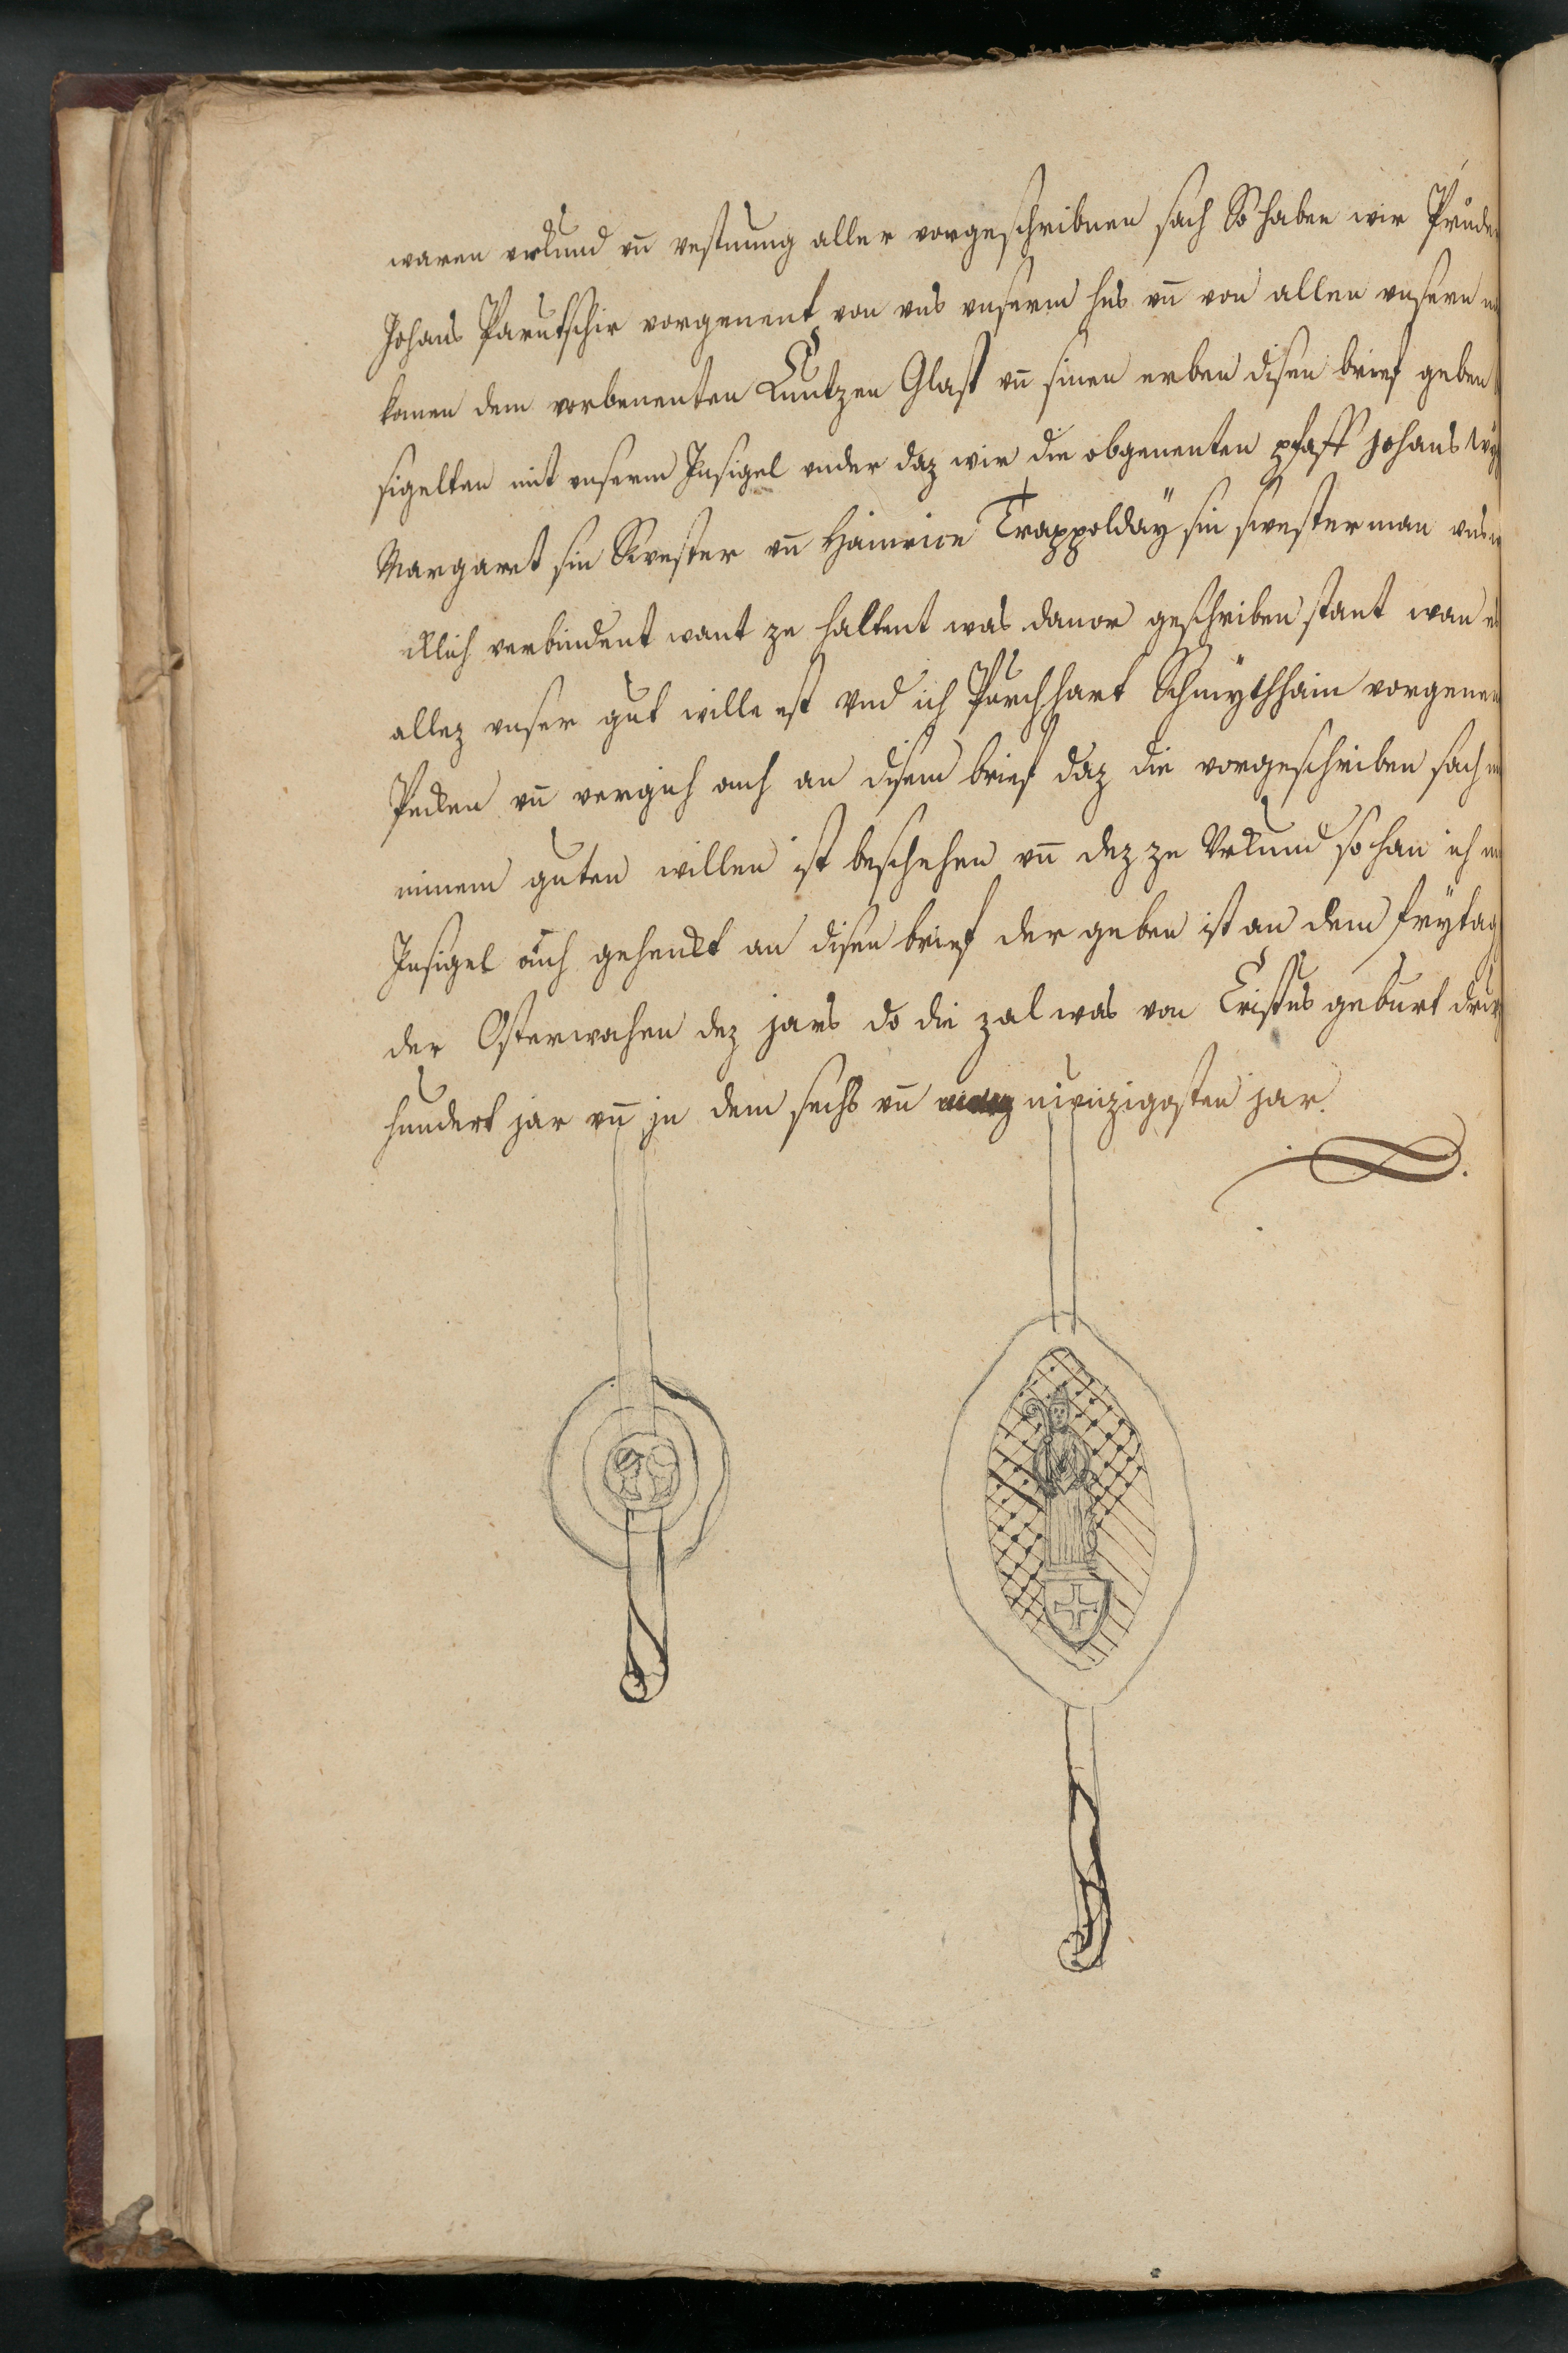 waren urkund vn̄ vestnung aller vorgeschribnen sach So haben wir Průde
Johans Parutschir vorgenent von vns vnserm hus vn̄ von allen vnsern
komen dem vorbenenten Cuntzen Glast vn̄ sinen erben disen brief geben
sigelten mit vnserm Insigel vnder daz wir die obgenenten pfaff Johans
Margaret sin Swester vn̄ Hainrice Trappolday̋ sin swesterman vns
klich verbindent want ze haltent was danor geschriben stant wan
allez vnser gut wille ist Vnd ich Purchhart Schmÿthhain vorgenen
Pecken vn̄ vergich auch an disem brief daz die vorgeschriben sach
minem guten willen ist beschehen vn̄ dez ze Vrkund so han ich
Insigel auch gehenkt an disen brief der geben ist an dem frÿtag
der Osterwochen dez jars do die zal was von Cristus geburt
hundert jar vn̄ jn dem sechs vn̄ niunzigosten jar.